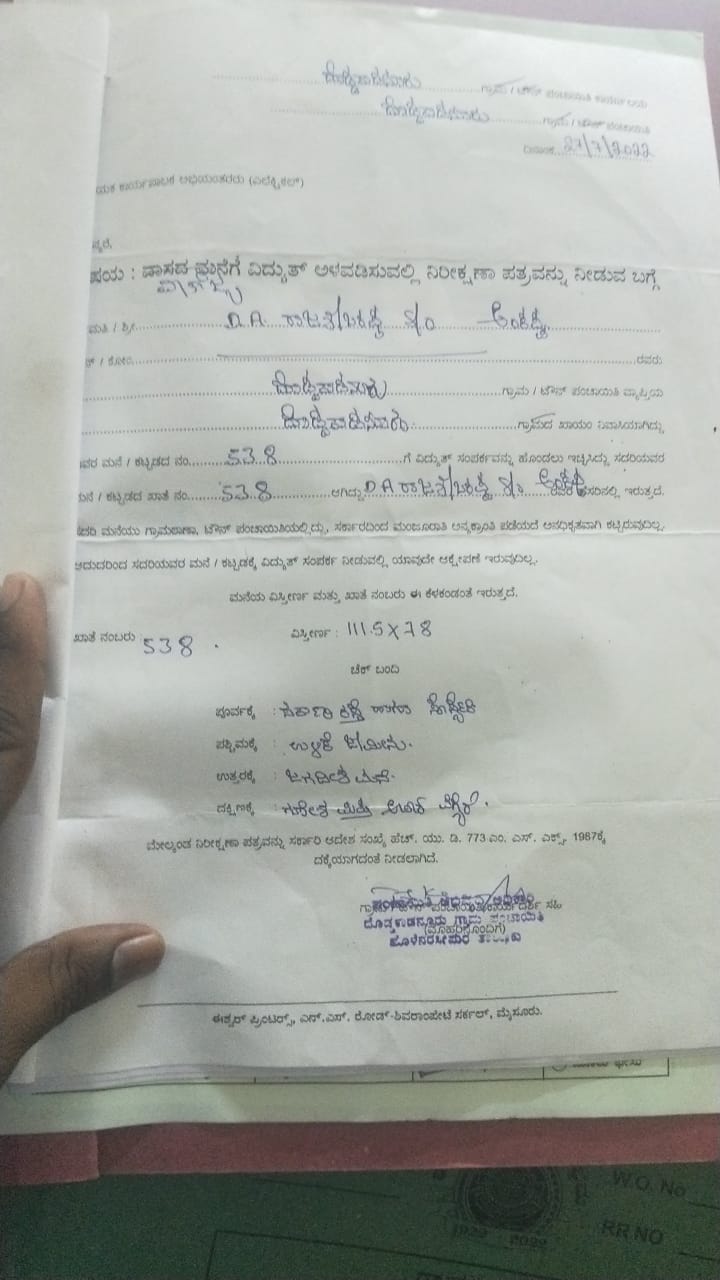 ದೊಡ್ಡಕಾಡನೂರು ಗ್ರಾಮ / ಟೌನ್ ಪಂಚಾಯಿತಿ ಕಾರ್ಯಾಲಯ
ದೊಡ್ಡಕಾಡನೂರು ಗ್ರಾಮ / ಟೌನ್ ಪಂಚಾಯಿತಿ
ದಿನಾಂಕ 27/7/2022
ಯಕ ಕಾರ್ಯಪಾಲಕ ಅಭಿಯಂತರರು (ಎಲೆಕ್ಟ್ರಿಕಲ್)
ನ್ಯರೆ,
ಷಯ : ವಾಸದ ಮನೆಗೆ ವಿದ್ಯುತ್ ಅಳವಡಿಸುವಲ್ಲಿ ನಿರೀಕ್ಷಣಾ ಪತ್ರವನ್ನು ನೀಡುವ ಬಗ್ಗೆ
ವಾಣಿಜ್ಯ
ಮತಿ / ಶ್ರೀ D.A. ರಾಜಶೇಖರಯ್ಯ S/o
ಕ್ / ಕೋಂ ರವರು
ದೊಡ್ಡಕಾಡನೂರು ಗ್ರಾಮ / ಟೌನ್ ಪಂಚಾಯಿತಿ ವ್ಯಾಪ್ತಿಯ
ದೊಡ್ಡಕಾಡನೂರು ಗ್ರಾಮದ ಖಾಯಂ ನಿವಾಸಿಯಾಗಿದ್ದು
ವರ ಮನೆ / ಕಟ್ಟಡದ ನಂ. 538 ಗೆ ವಿದ್ಯುತ್ ಸಂಪರ್ಕವನ್ನು ಹೊಂದಲು ಇಚ್ಛಿಸಿದ್ದು ಸದರಿಯವರ
ಮನೆ / ಕಟ್ಟಡದ ಖಾತೆ ನಂ. 538 ಆಗಿದ್ದು D.A ರಾಜಶೇಖರಯ್ಯ S/o ರವರ ಹೆಸರಿನಲ್ಲಿ ಇರುತ್ತದೆ.
ಸದರಿ ಮನೆಯು ಗ್ರಾಮಠಾಣಾ, ಟೌನ್ ಪಂಚಾಯಿತಿಯಲ್ಲಿದ್ದು, ಸರ್ಕಾರದಿಂದ ಮಂಜೂರಾತಿ ಅನ್ಯಕ್ರಾಂತಿ ಪಡೆಯದೆ ಅನಧಿಕೃತವಾಗಿ ಕಟ್ಟಿರುವುದಿಲ್ಲ.
ಆದುದರಿಂದ ಸದರಿಯವರ ಮನೆ / ಕಟ್ಟಡಕ್ಕೆ ವಿದ್ಯುತ್ ಸಂಪರ್ಕ ನೀಡುವಲ್ಲಿ ಯಾವುದೇ ಆಕ್ಷೇಪಣೆ ಇರುವುದಿಲ್ಲ.
ಮನೆಯ ವಿಸ್ತೀರ್ಣ ಮತ್ತು ಖಾತೆ ನಂಬರು ಈ ಕೆಳಕಂಡಂತೆ ಇರುತ್ತದೆ.
ಖಾತೆ ನಂಬರು : 538 . ವಿಸ್ತೀರ್ಣ : 111.5 X 78
ಚೆಕ್ ಬಂದಿ
ಪೂರ್ವಕ್ಕೆ : ಸರ್ಕಾರಿ ರಸ್ತೆ
ಪಶ್ಚಿಮಕ್ಕೆ : ಉಳಿಕೆ ಜಮೀನು.
ಉತ್ತರಕ್ಕೆ : ಜಗದೀಶ ಮನೆ.
ದಕ್ಷಿಣಕ್ಕೆ : ಗಣೇಶ ಮತ್ತು
ಮೇಲ್ಕಂಡ ನಿರೀಕ್ಷಣಾ ಪತ್ರವನ್ನು ಸರ್ಕಾರಿ ಆದೇಶ ಸಂಖ್ಯೆ ಹೆಚ್. ಯು. ಡಿ. 773 ಎಂ. ಎಸ್. ಎಕ್ಸ್. 1987ಕ್ಕೆ
ದಕ್ಕೆಯಾಗದಂತೆ ನೀಡಲಾಗಿದೆ.
ದೊಡ್ಡಕಾಡನೂರು ಗ್ರಾಮ ಪಂಚಾಯಿತಿ
(ಮೊಹರಿನೊಂದಿಗೆ)
ಹೊಳೆನರಸೀಪುರ ತಾಲ್ಲೂಕು
ಈಶ್ವರ್ ಪ್ರಿಂಟರ್ಸ್, ಎನ್.ಎಸ್. ರೋಡ್-ಶಿವರಾಂಪೇಟೆ ಸರ್ಕಲ್, ಮೈಸೂರು.
W.O. No
RR NO